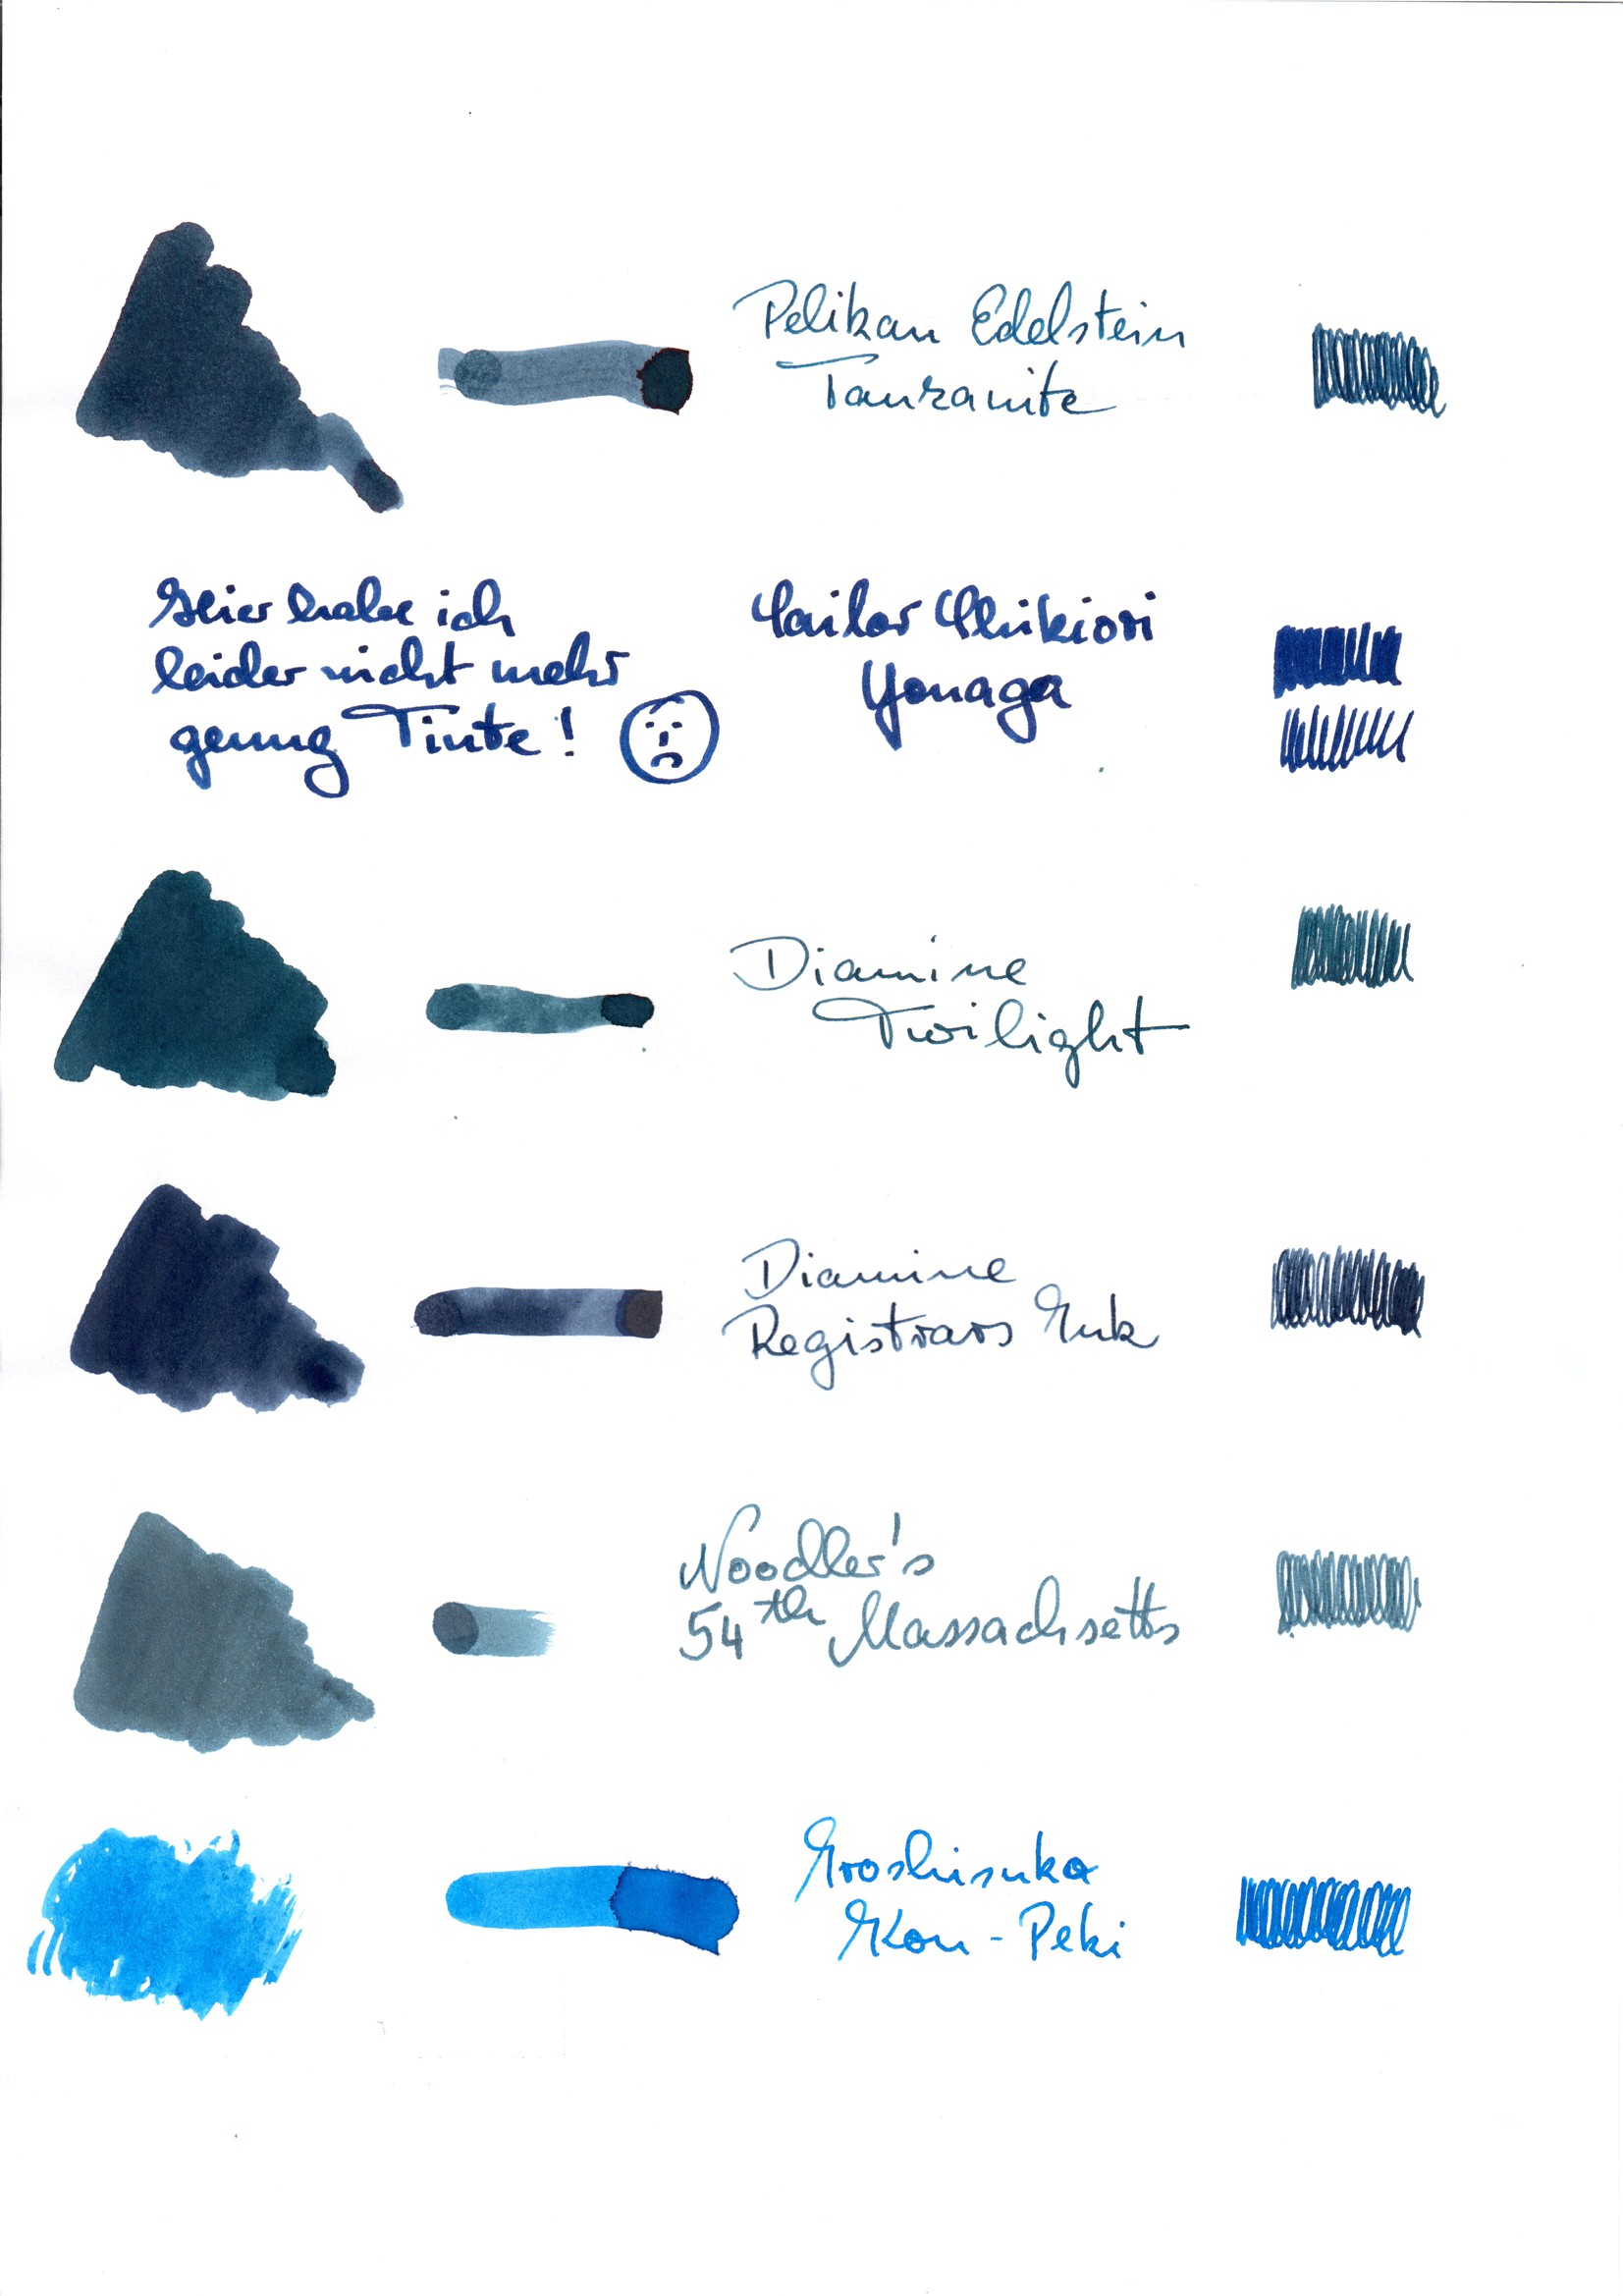 Pelikan Edelstein
Tanzanite
Hier habe ich
leider nicht mehr
genug Tinte!
Sailor Shikiori
Yonaga
Diamine
Twilight
Diamine
Registrars Ink
Noodler's
54th Massachsetts
Iroshisuka
Kon-Peki